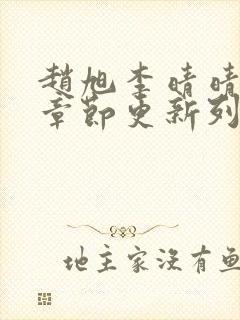 趙旭李晴晴
章節更新列
地主家沒有魚